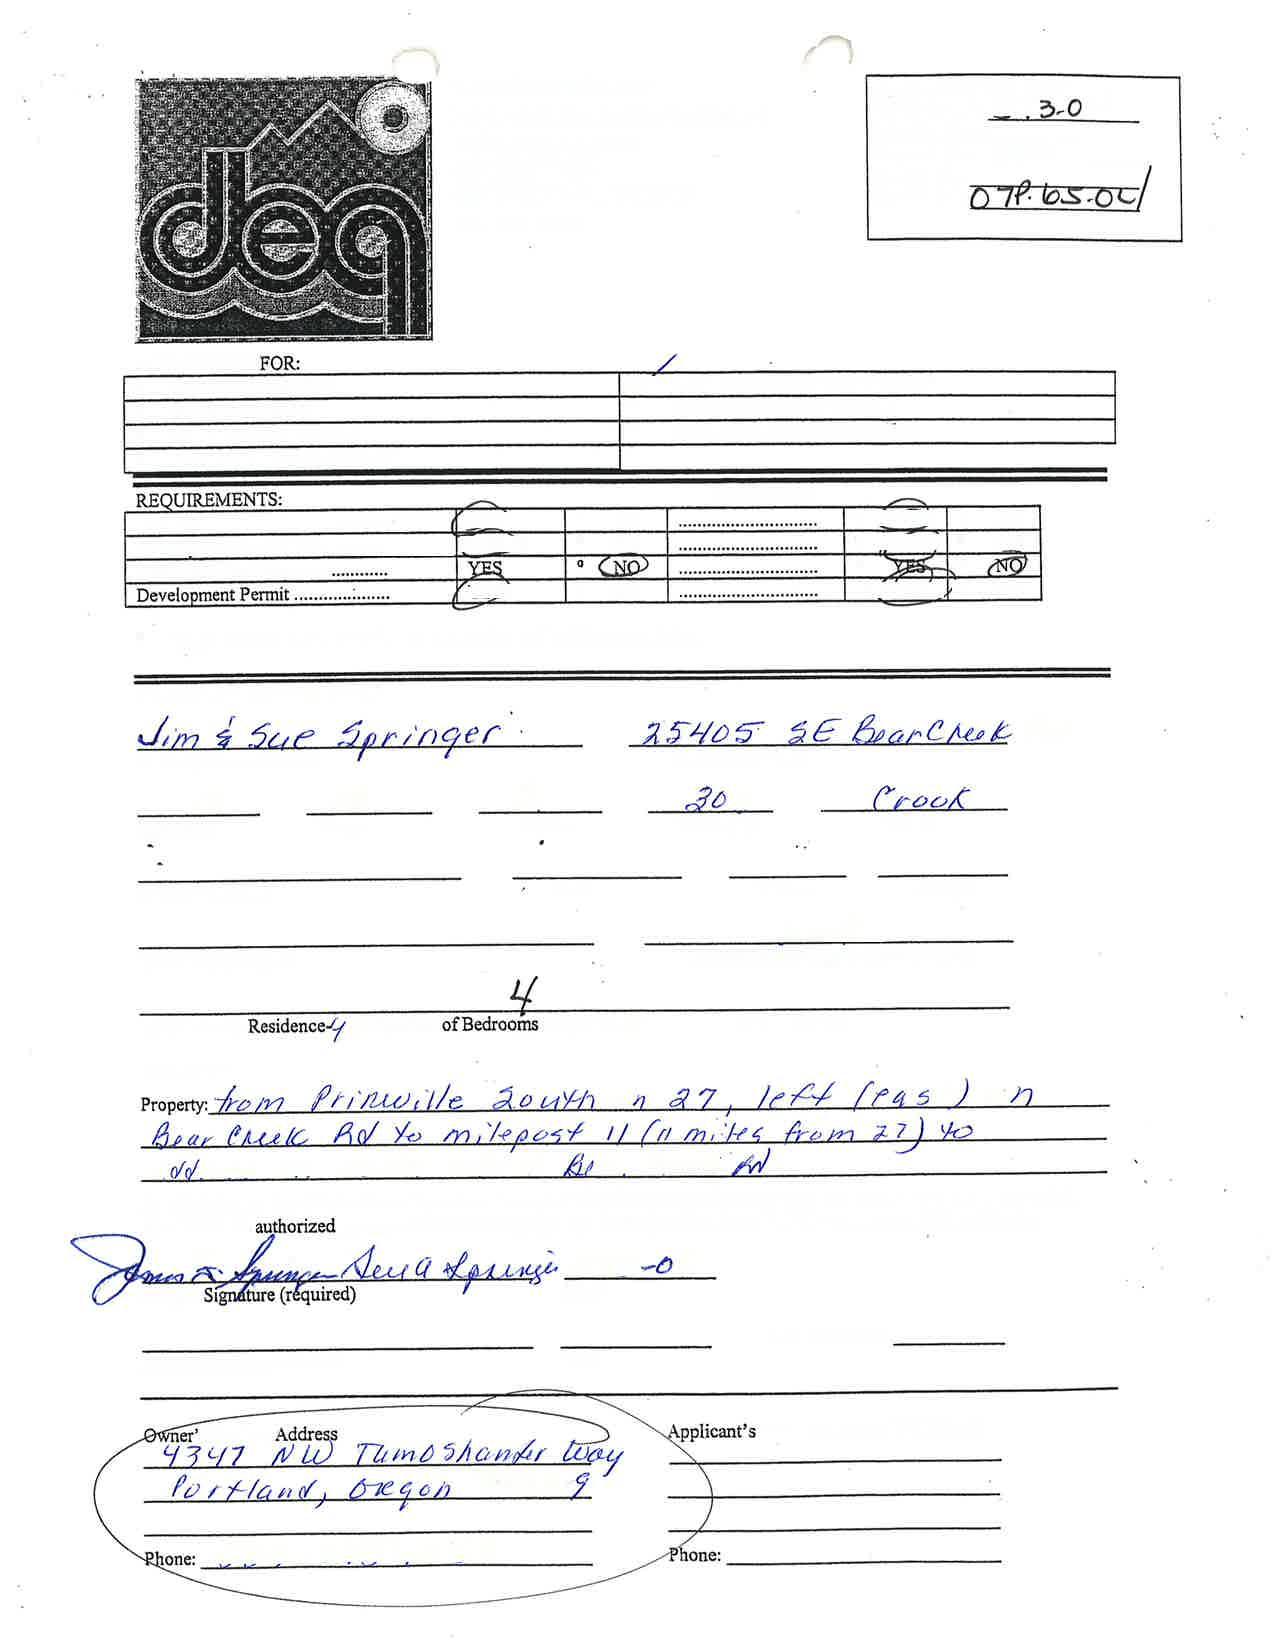 3-0
deq
FOR:
REQUIREMENTS:
YES NO YES NO
Development Permit ....................
Jim & Sue Springer 25405 SE Bear Creek
30 Crook
4
Residence-4 of Bedrooms
Property: from Prineville South n 27, left (eas ) n
Bear Creek Rd to milepost 11 (11 miles from 27) to
Rd
authorized
James Springer Sue A Springer -0
Signature (required)
Owner' Address Applicant's
4347 NW Way
Portland, Oregon 9
Phone: Phone: